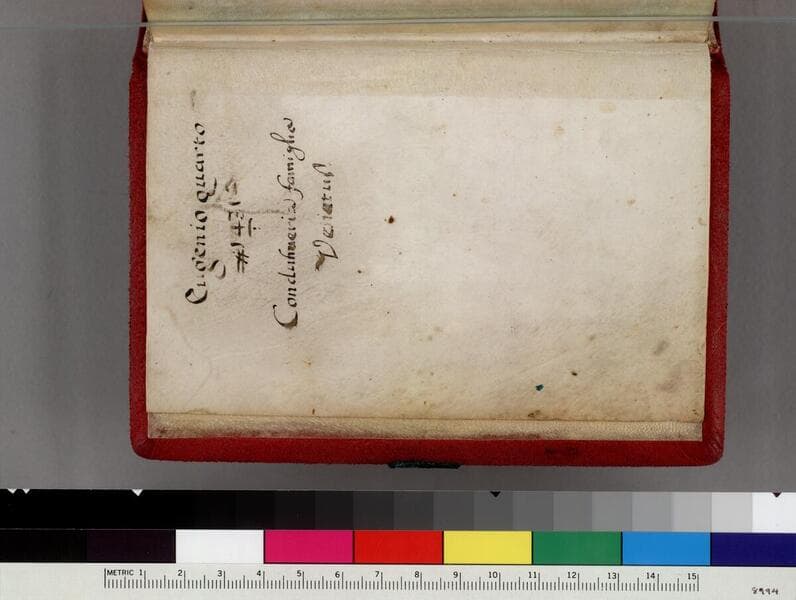 Eugenio quarto
Condulmeria famiglia
METRIC 1 2 3 4 5 6 7 8 9 10 11 12 13 14 15
8994